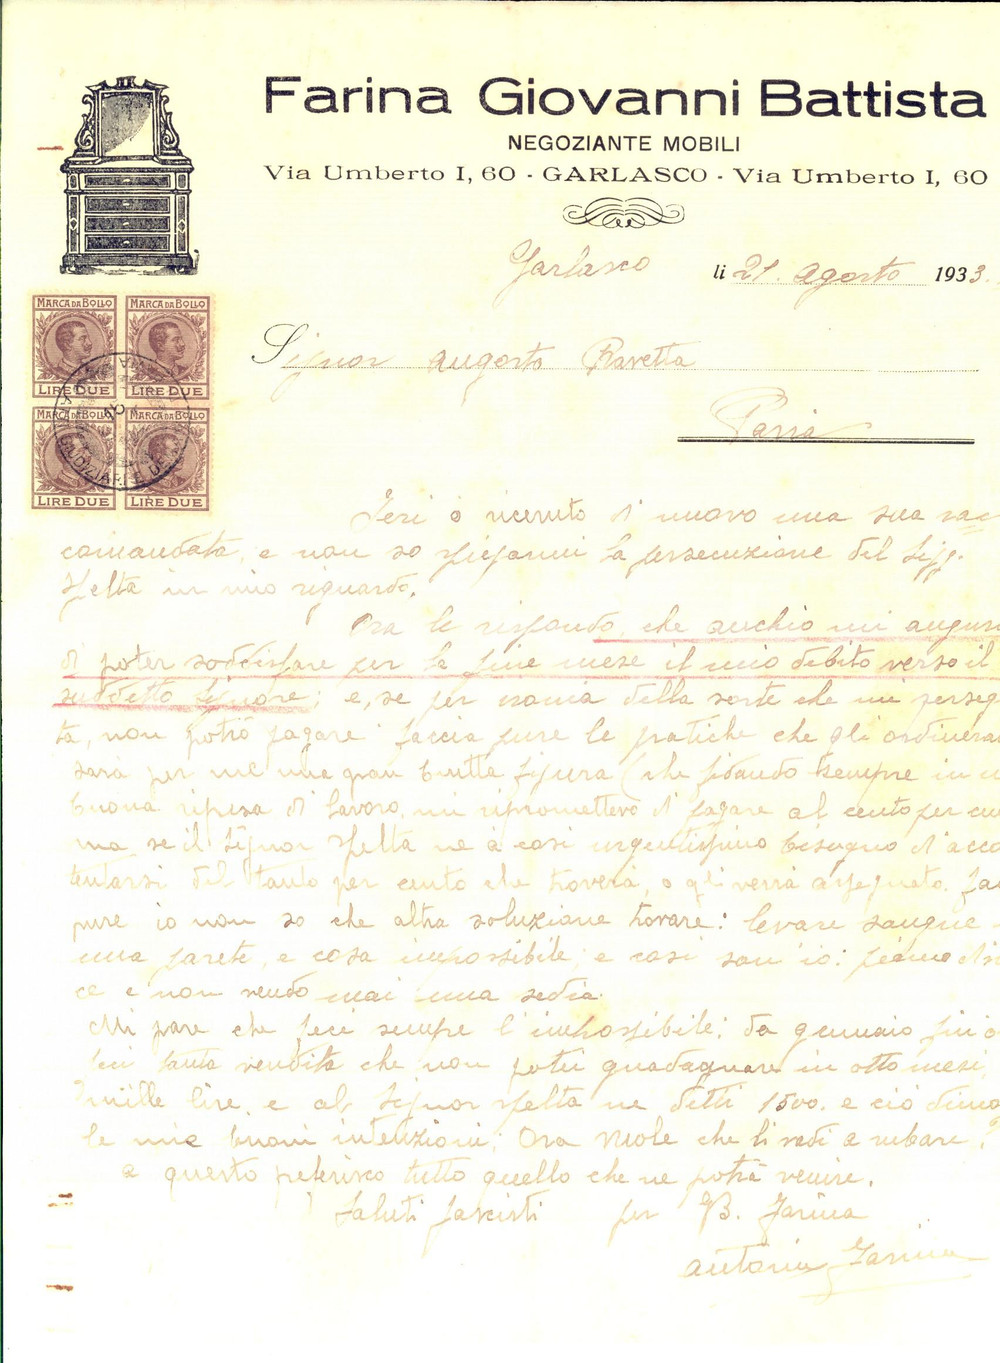 Farina Giovanni Battista
NEGOZIANTE MOBILI
Via Umberto I, 60 - GARLASCO - Via Umberto I, 60
Garlasco li 21 Agosto 1933.
MARCA DA BOLLO MARCA DA BOLLO
LIRE DUE LIRE DUE
MARCA DA BOLLO MARCA DA BOLLO
LIRE DUE LIRE DUE
GIUDIZIARIE DE
Signor Augosto Ravetta
Pavia
Ieri ò ricevuto di nuovo una sua rac
comandata, e non so spiegarmi la persecuzione del Sigg.
Spelta in mio riguardo.
Ora le rispondo, che anchio mi augur
di poter soddisfare per la fine mese il mio debito verso il
suddetto Signore; e, se per ironia della sorte che mi perseg
ta, non potrò pagare faccia pure le pratiche che gli ordinera
sarà per me una gran brutta figura (che fidando sempre in u
buona ripresa di lavoro, mi ripromettevo di pagare al cento per cen
ma se il Signor Spelta ne à cosi urgentissimo bisogno d'acco
tentarsi del tanto per cento che troverà, o gli verrà assegnato. fac
pure io non so che altra soluzione trovare: levare sangue
una parete, e cosa impossibile; e cosi son io:
ce e non vendo mai una sedia.
Mi pare che feci sempre l'impossibile; da gennaio fin ò
feci tanta vendita che non potei guadagnare in otto mesi,
mille lire, e al Signor Spelta ne detti 1500. e ciò dimo
le mie buoni intenzioni; Ora vuole che li vadi a rubare?
a questo preferisco tutto quello che ne potrà venire.
Saluti fascisti per GB. Farina
Antonia Farina